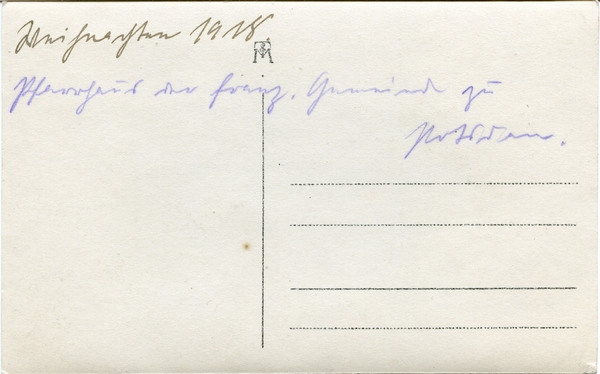 Weihnachten 1918
Pfarrhaus der franz. Gemeinde zu
Potsdam.